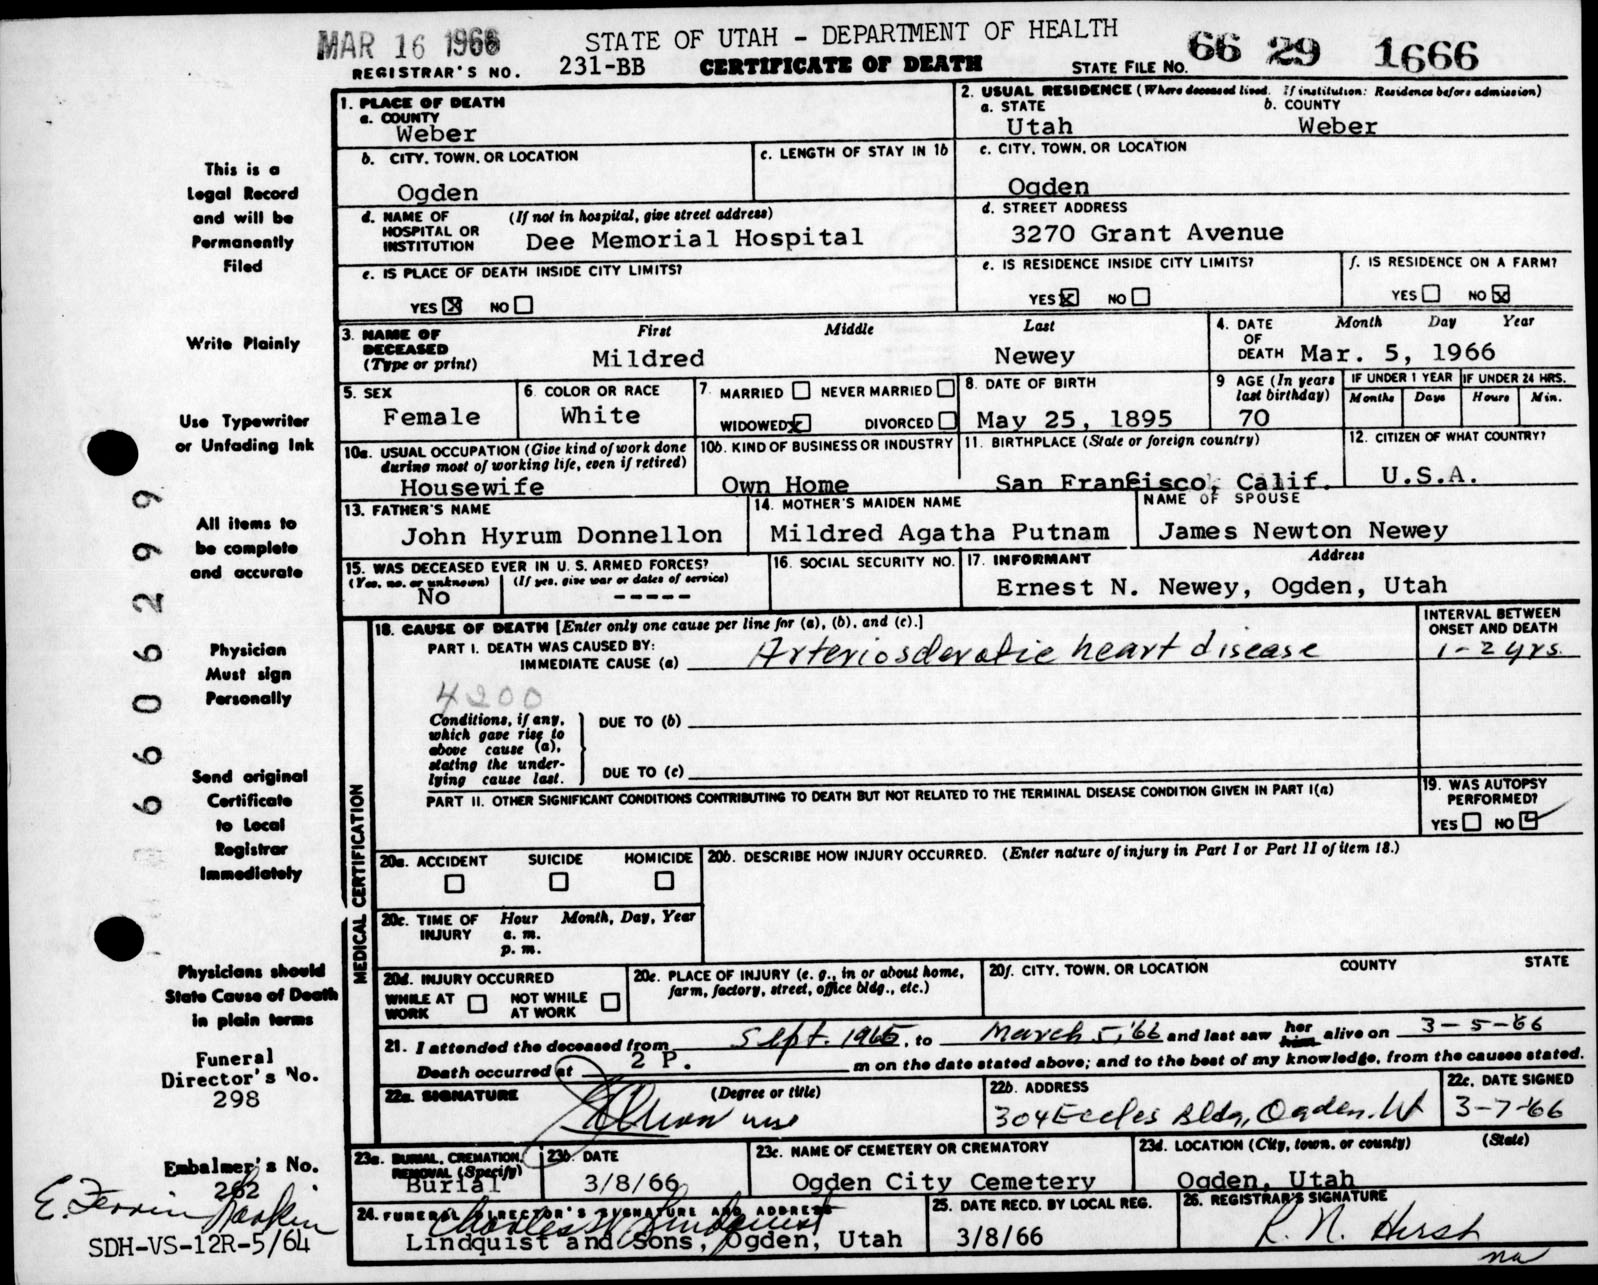 MAR 16 1966
STATE OF UTAH - DEPARTMENT OF HEALTH
REGISTRAR'S NO. 231-BB CERTIFICATE OF DEATH STATE FILE NO. 66 29 1666
1. PLACE OF DEATH
a. COUNTY
Weber
2. USUAL RESIDENCE (Where deceased lived. If institution: Residence before admission)
a. STATE b. COUNTY
Utah Weber
b. CITY, TOWN, OR LOCATION
Ogden
c. LENGTH OF STAY IN 1b
c. CITY, TOWN, OR LOCATION
Ogden
d. NAME OF HOSPITAL OR INSTITUTION (If not in hospital, give street address)
Dee Memorial Hospital
d. STREET ADDRESS
3270 Grant Avenue
e. IS PLACE OF DEATH INSIDE CITY LIMITS?
YES X NO
e. IS RESIDENCE INSIDE CITY LIMITS?
YES X NO
f. IS RESIDENCE ON A FARM?
YES NO X
3. NAME OF DECEASED (Type or print)
First Middle Last
Mildred Newey
4. DATE OF DEATH
Month Day Year
Mar. 5, 1966
5. SEX
Female
6. COLOR OR RACE
White
7. MARRIED NEVER MARRIED
WIDOWED X DIVORCED
8. DATE OF BIRTH
May 25, 1895
9 AGE (In years last birthday)
70
IF UNDER 1 YEAR
Months Days
IF UNDER 24 HRS.
Hours Min.
10a. USUAL OCCUPATION (Give kind of work done during most of working life, even if retired)
Housewife
10b. KIND OF BUSINESS OR INDUSTRY
Own Home
11. BIRTHPLACE (State or foreign country)
San Francisco, Calif.
12. CITIZEN OF WHAT COUNTRY?
U.S.A.
13. FATHER'S NAME
John Hyrum Donnellon
14. MOTHER'S MAIDEN NAME
Mildred Agatha Putnam
NAME OF SPOUSE
James Newton Newey
15. WAS DECEASED EVER IN U. S. ARMED FORCES?
(Yes, no, or unknown) (If yes, give war or dates of service)
No -----
16. SOCIAL SECURITY NO.
17. INFORMANT Address
Ernest N. Newey, Ogden, Utah
MEDICAL CERTIFICATION
18. CAUSE OF DEATH [Enter only one cause per line for (a), (b), and (c).]
PART I. DEATH WAS CAUSED BY:
IMMEDIATE CAUSE (a) Arteriosclerotic heart disease
INTERVAL BETWEEN ONSET AND DEATH
1-2 yrs.
4200
Conditions, if any, which gave rise to above cause (a), stating the underlying cause last.
DUE TO (b)
DUE TO (c)
PART II. OTHER SIGNIFICANT CONDITIONS CONTRIBUTING TO DEATH BUT NOT RELATED TO THE TERMINAL DISEASE CONDITION GIVEN IN PART I(a)
19. WAS AUTOPSY PERFORMED?
YES NO ✓
20a. ACCIDENT SUICIDE HOMICIDE
20b. DESCRIBE HOW INJURY OCCURRED. (Enter nature of injury in Part I or Part II of item 18.)
20c. TIME OF INJURY Hour Month, Day, Year
a. m.
p. m.
20d. INJURY OCCURRED
WHILE AT WORK NOT WHILE AT WORK
20e. PLACE OF INJURY (e. g., in or about home, farm, factory, street, office bldg., etc.)
20f. CITY, TOWN, OR LOCATION COUNTY STATE
21. I attended the deceased from Sept. 1965, to March 5, '66 and last saw her him alive on 3-5-'66
Death occurred at 2 P. m on the date stated above; and to the best of my knowledge, from the causes stated.
22a. SIGNATURE (Degree or title)
22b. ADDRESS
304 Eccles Bldg, Ogden, Ut
22c. DATE SIGNED
3-7-'66
23a. BURIAL, CREMATION, REMOVAL (Specify)
Burial
23b. DATE
3/8/66
23c. NAME OF CEMETERY OR CREMATORY
Ogden City Cemetery
23d. LOCATION (City, town, or county) (State)
Ogden, Utah
24. FUNERAL DIRECTOR'S SIGNATURE AND ADDRESS
Charles W Lindquist
Lindquist and Sons, Ogden, Utah
25. DATE RECD. BY LOCAL REG.
3/8/66
26. REGISTRAR'S SIGNATURE
R. N. Hirst
This is a
Legal Record
and will be
Permanently
Filed
Write Plainly
Use Typewriter
or Unfading Ink
All items to
be complete
and accurate
Physician
Must sign
Personally
Send original
Certificate
to Local
Registrar
Immediately
Physicians should
State Cause of Death
in plain terms
Funeral
Director's No.
298
Embalmer's No.
262
E. Ferrin Larkin
SDH-VS-12R-5/64
6606299